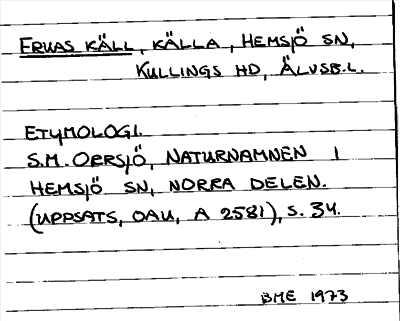 ERVAS KÄLL, KÄLLA, HEMSJÖ SN,
KULLINGS HD, ÄLVSB.L.
ETYMOLOGI.
S.M. ORRSJÖ, NATURNAMNEN I
HEMSJÖ SN, NORRA DELEN.
(UPPSATS, OAU, A 2581), S. 34.
BME 1973